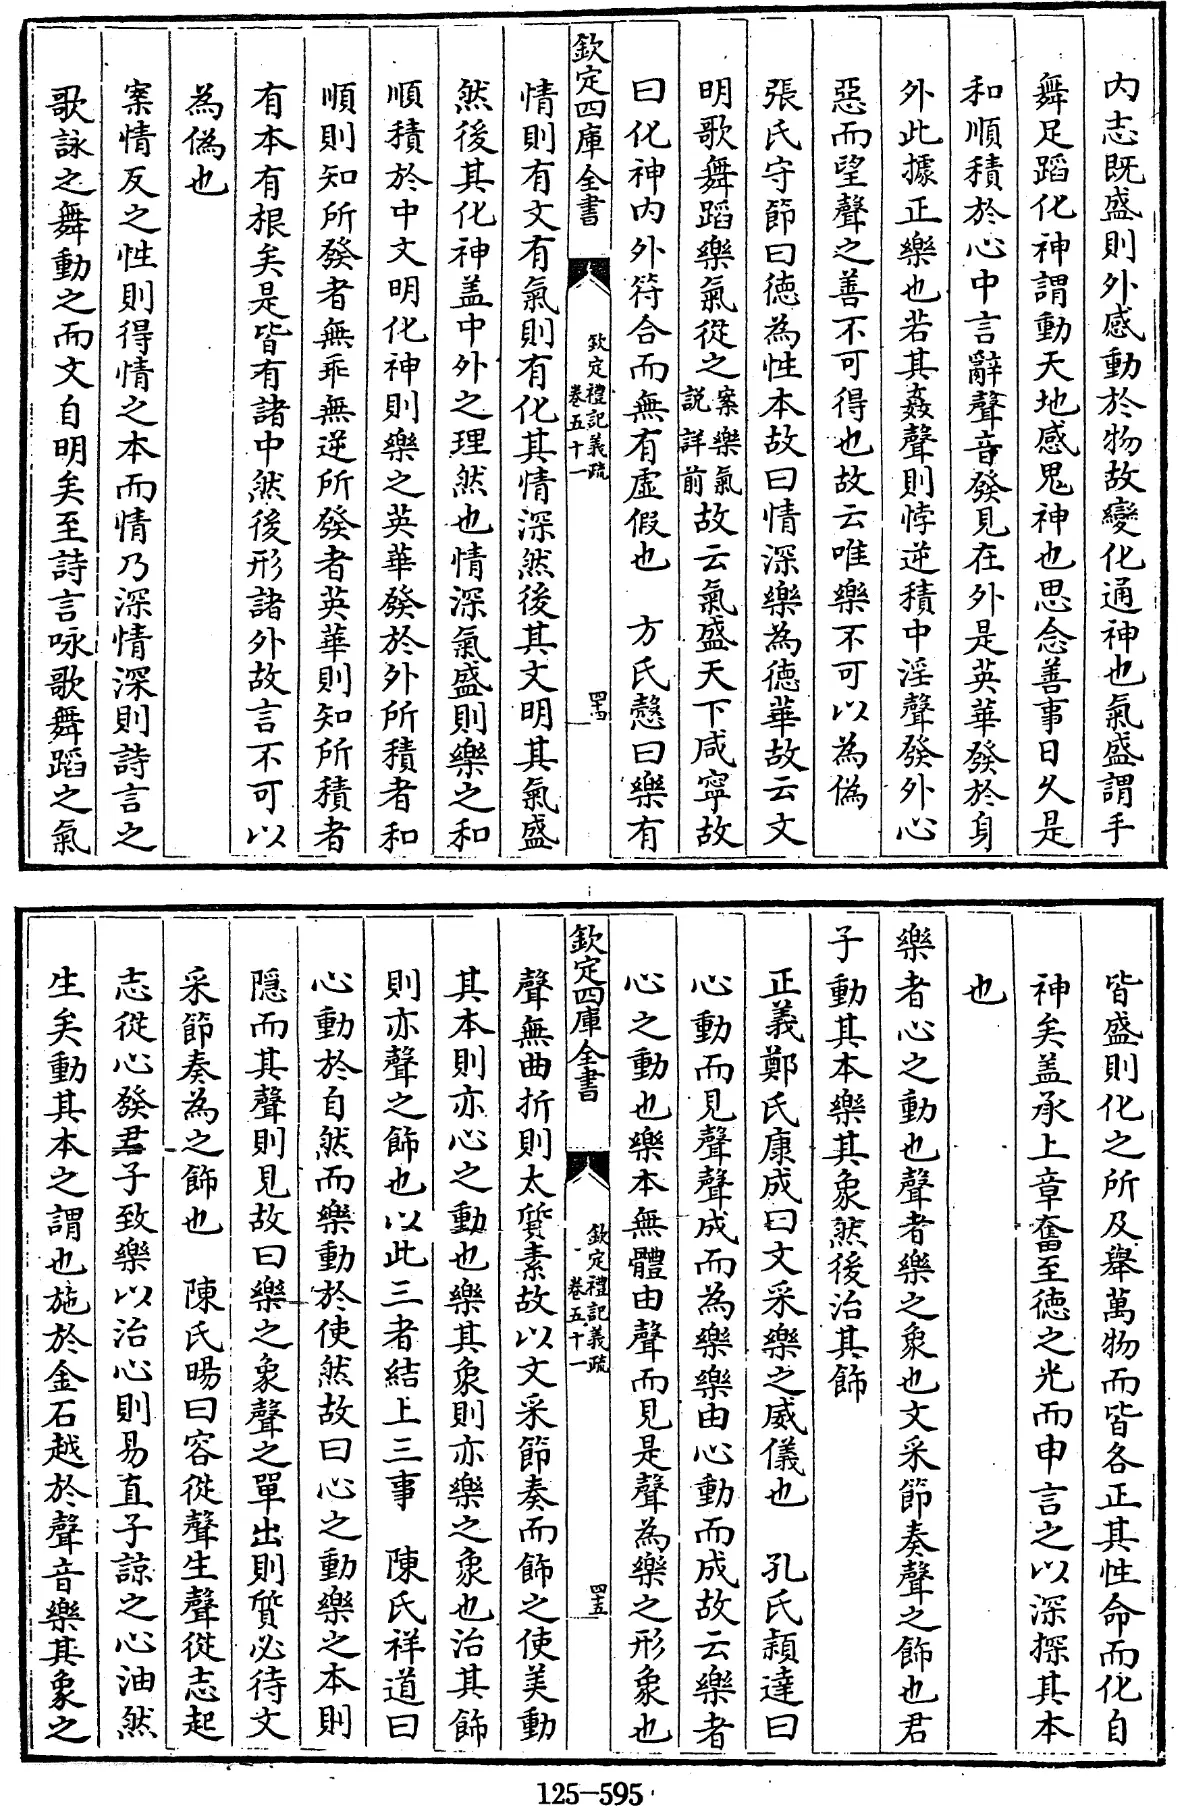 內志既盛則外感動於物故變化通神也氣盛謂手
舞足蹈化神謂動天地感鬼神也思念善事日久是
和順積於心中言辭聲音發見在外是英華發於身
外此據正樂也若其姦聲則悖逆積中淫聲發外心
惡而望聲之善不可得也故云唯樂不可以為偽
張氏守節曰德為性本故曰情深樂為德華故云文
明歌舞蹈樂氣從之案樂氣說詳前故云氣盛天下咸寧故
曰化神內外符合而無有虛假也 方氏慤曰樂有
欽定四庫全書 欽定禮記義疏 卷五十一 四十四
情則有文有氣則有化其情深然後其文明其氣盛
然後其化神盖中外之理然也情深氣盛則樂之和
順積於中文明化神則樂之英華發於外所積者和
順則知所發者無乖無逆所發者英華則知所積者
有本有根矣是皆有諸中然後形諸外故言不可以
為偽也
案情反之性則得情之本而情乃深情深則詩言之
歌詠之舞動之而文自明矣至詩言咏歌舞蹈之氣
皆盛則化之所及舉萬物而皆各正其性命而化自
神矣盖承上章奮至德之光而申言之以深探其本
也
樂者心之動也聲者樂之象也文采節奏聲之飾也君
子動其本樂其象然後治其飾
正義鄭氏康成曰文采樂之威儀也 孔氏穎達曰
心動而見聲聲成而為樂樂由心動而成故云樂者
心之動也樂本無體由聲而見是聲為樂之形象也
欽定四庫全書 欽定禮記義疏 卷五十一 四十五
聲無曲折則太質素故以文采節奏而飾之使美動
其本則亦心之動也樂其象則亦樂之象也治其飾
則亦聲之飾也以此三者結上三事 陳氏祥道曰
心動於自然而樂動於使然故曰心之動樂之本則
隱而其聲則見故曰樂之象聲之單出則質必待文
采節奏為之飾也 陳氏暘曰容從聲生聲從志起
志從心發君子致樂以治心則易直子諒之心油然
生矣動其本之謂也施於金石越於聲音樂其象之
125-595